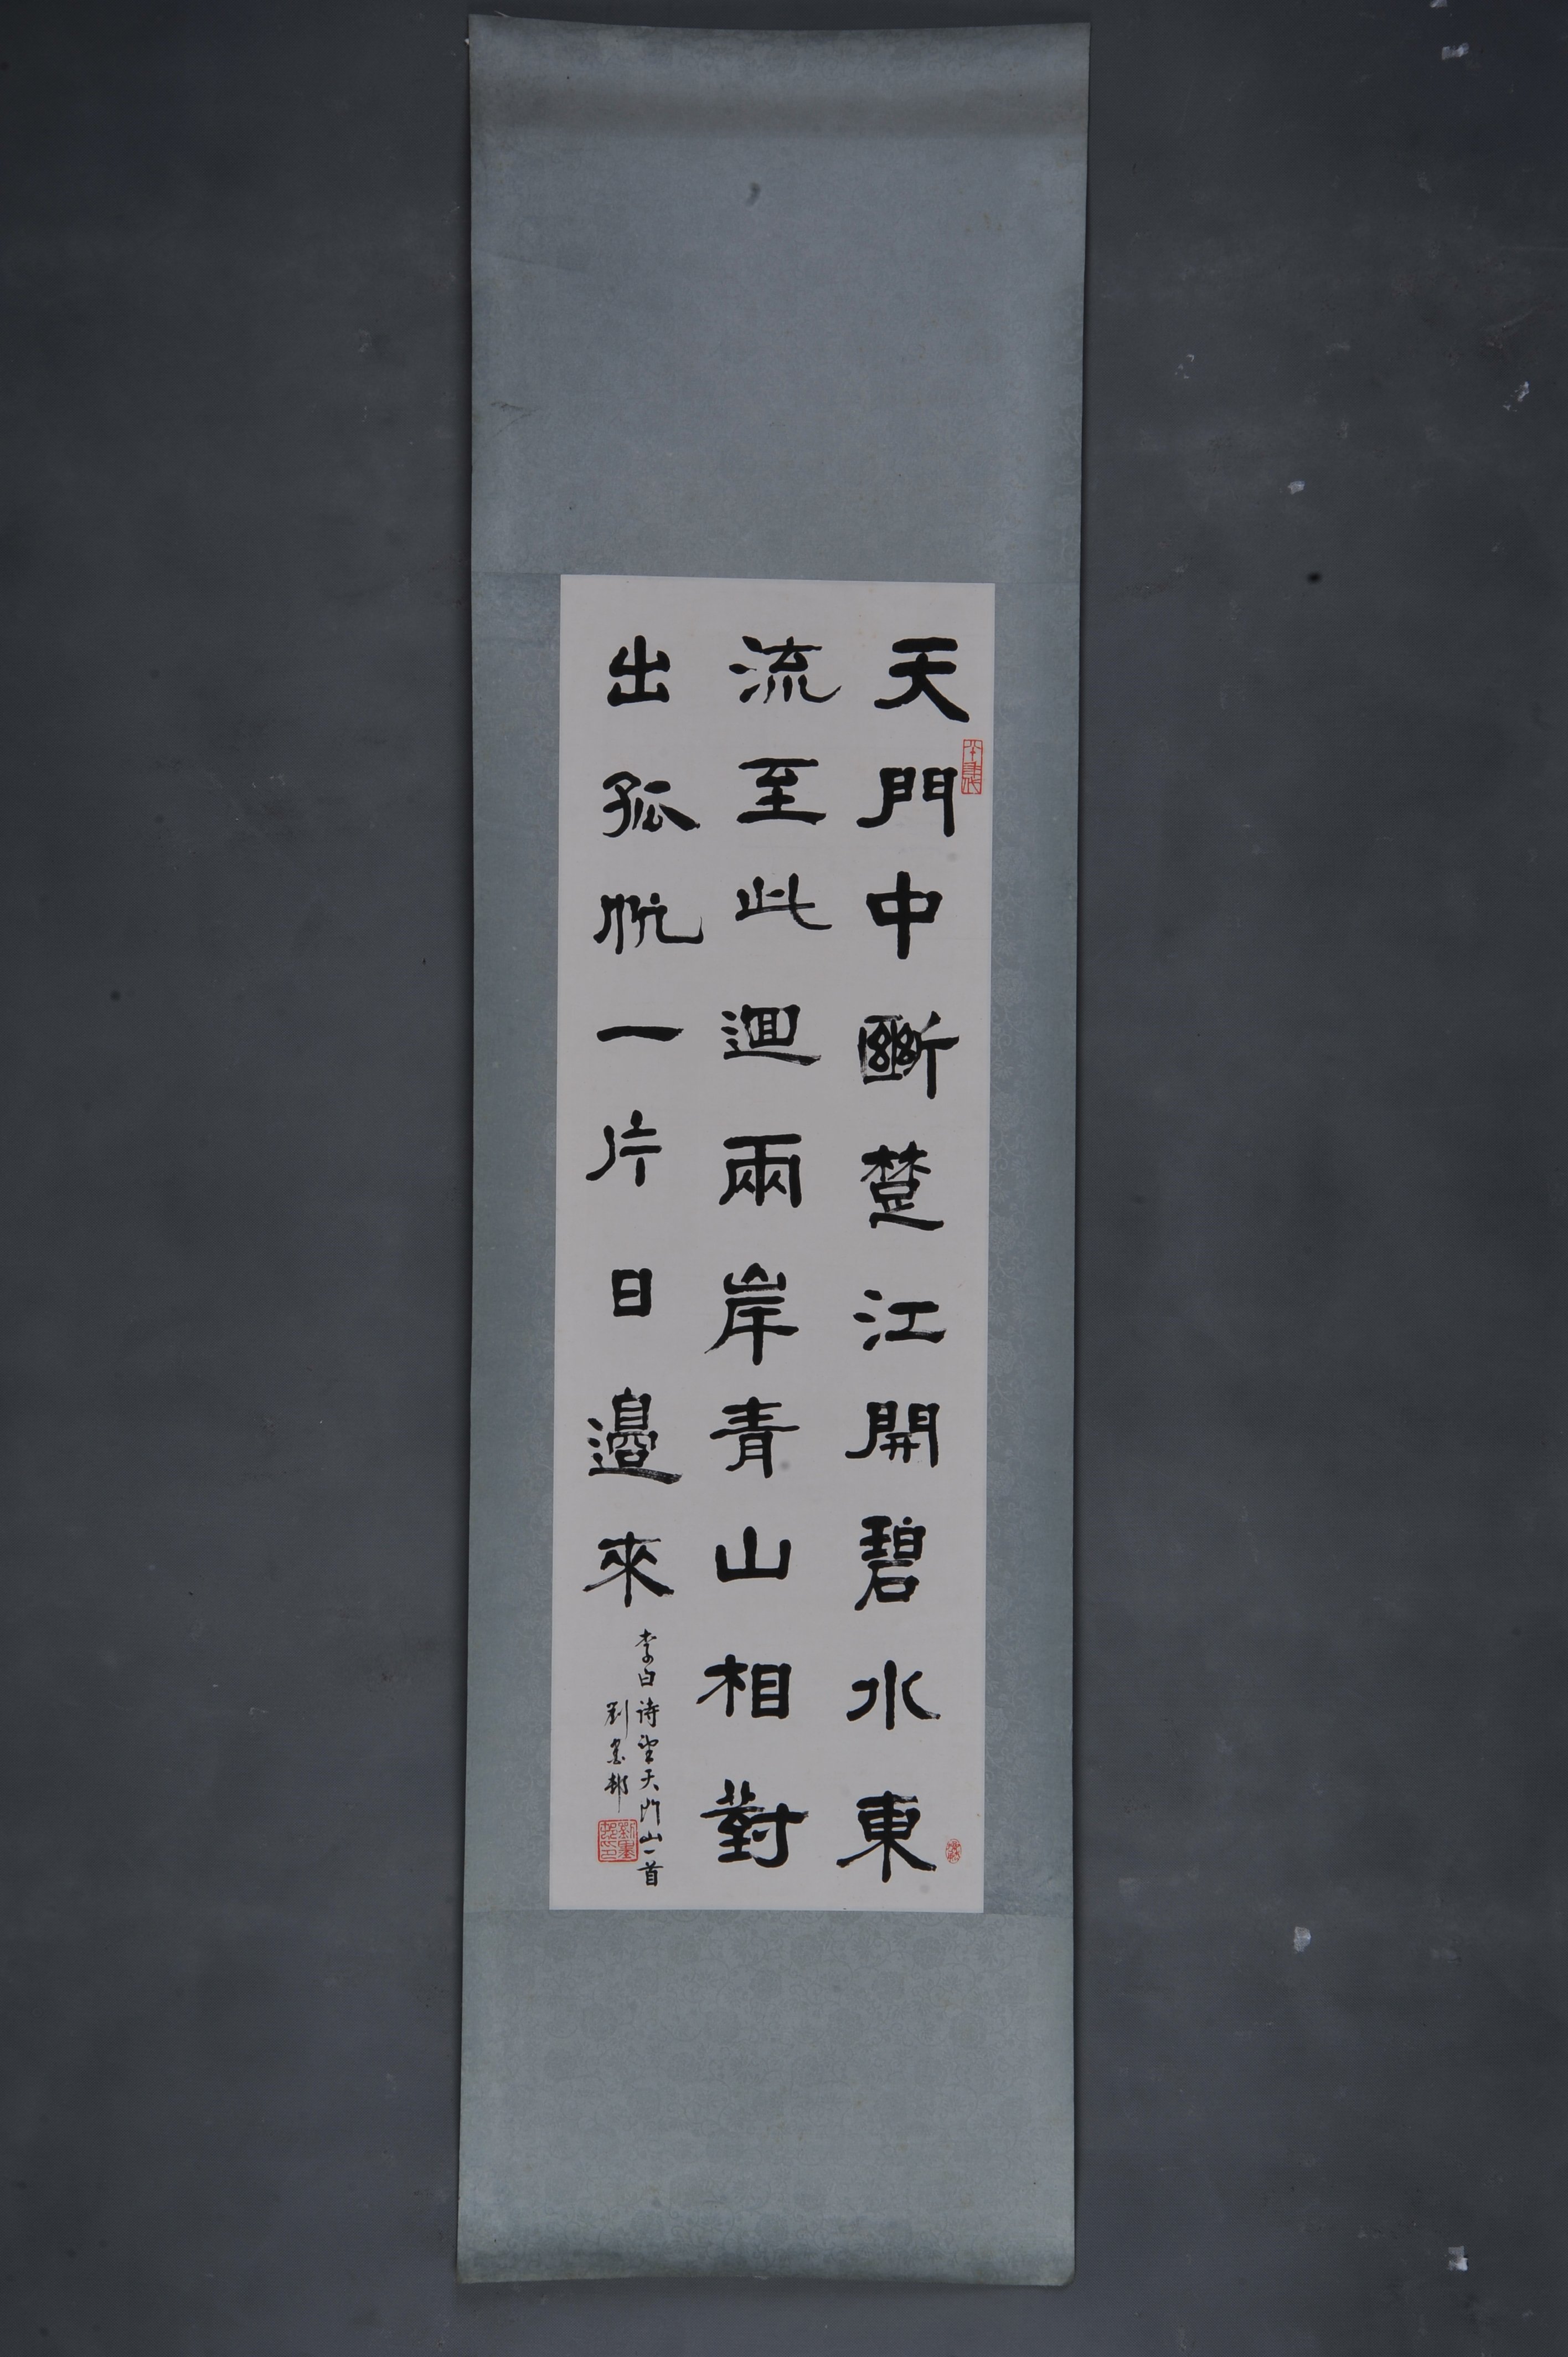 天門中斷楚江開碧水東
流至此迴兩岸青山相對
出孤帆一片日邊來
李白诗望天门山一首
劉墨邨